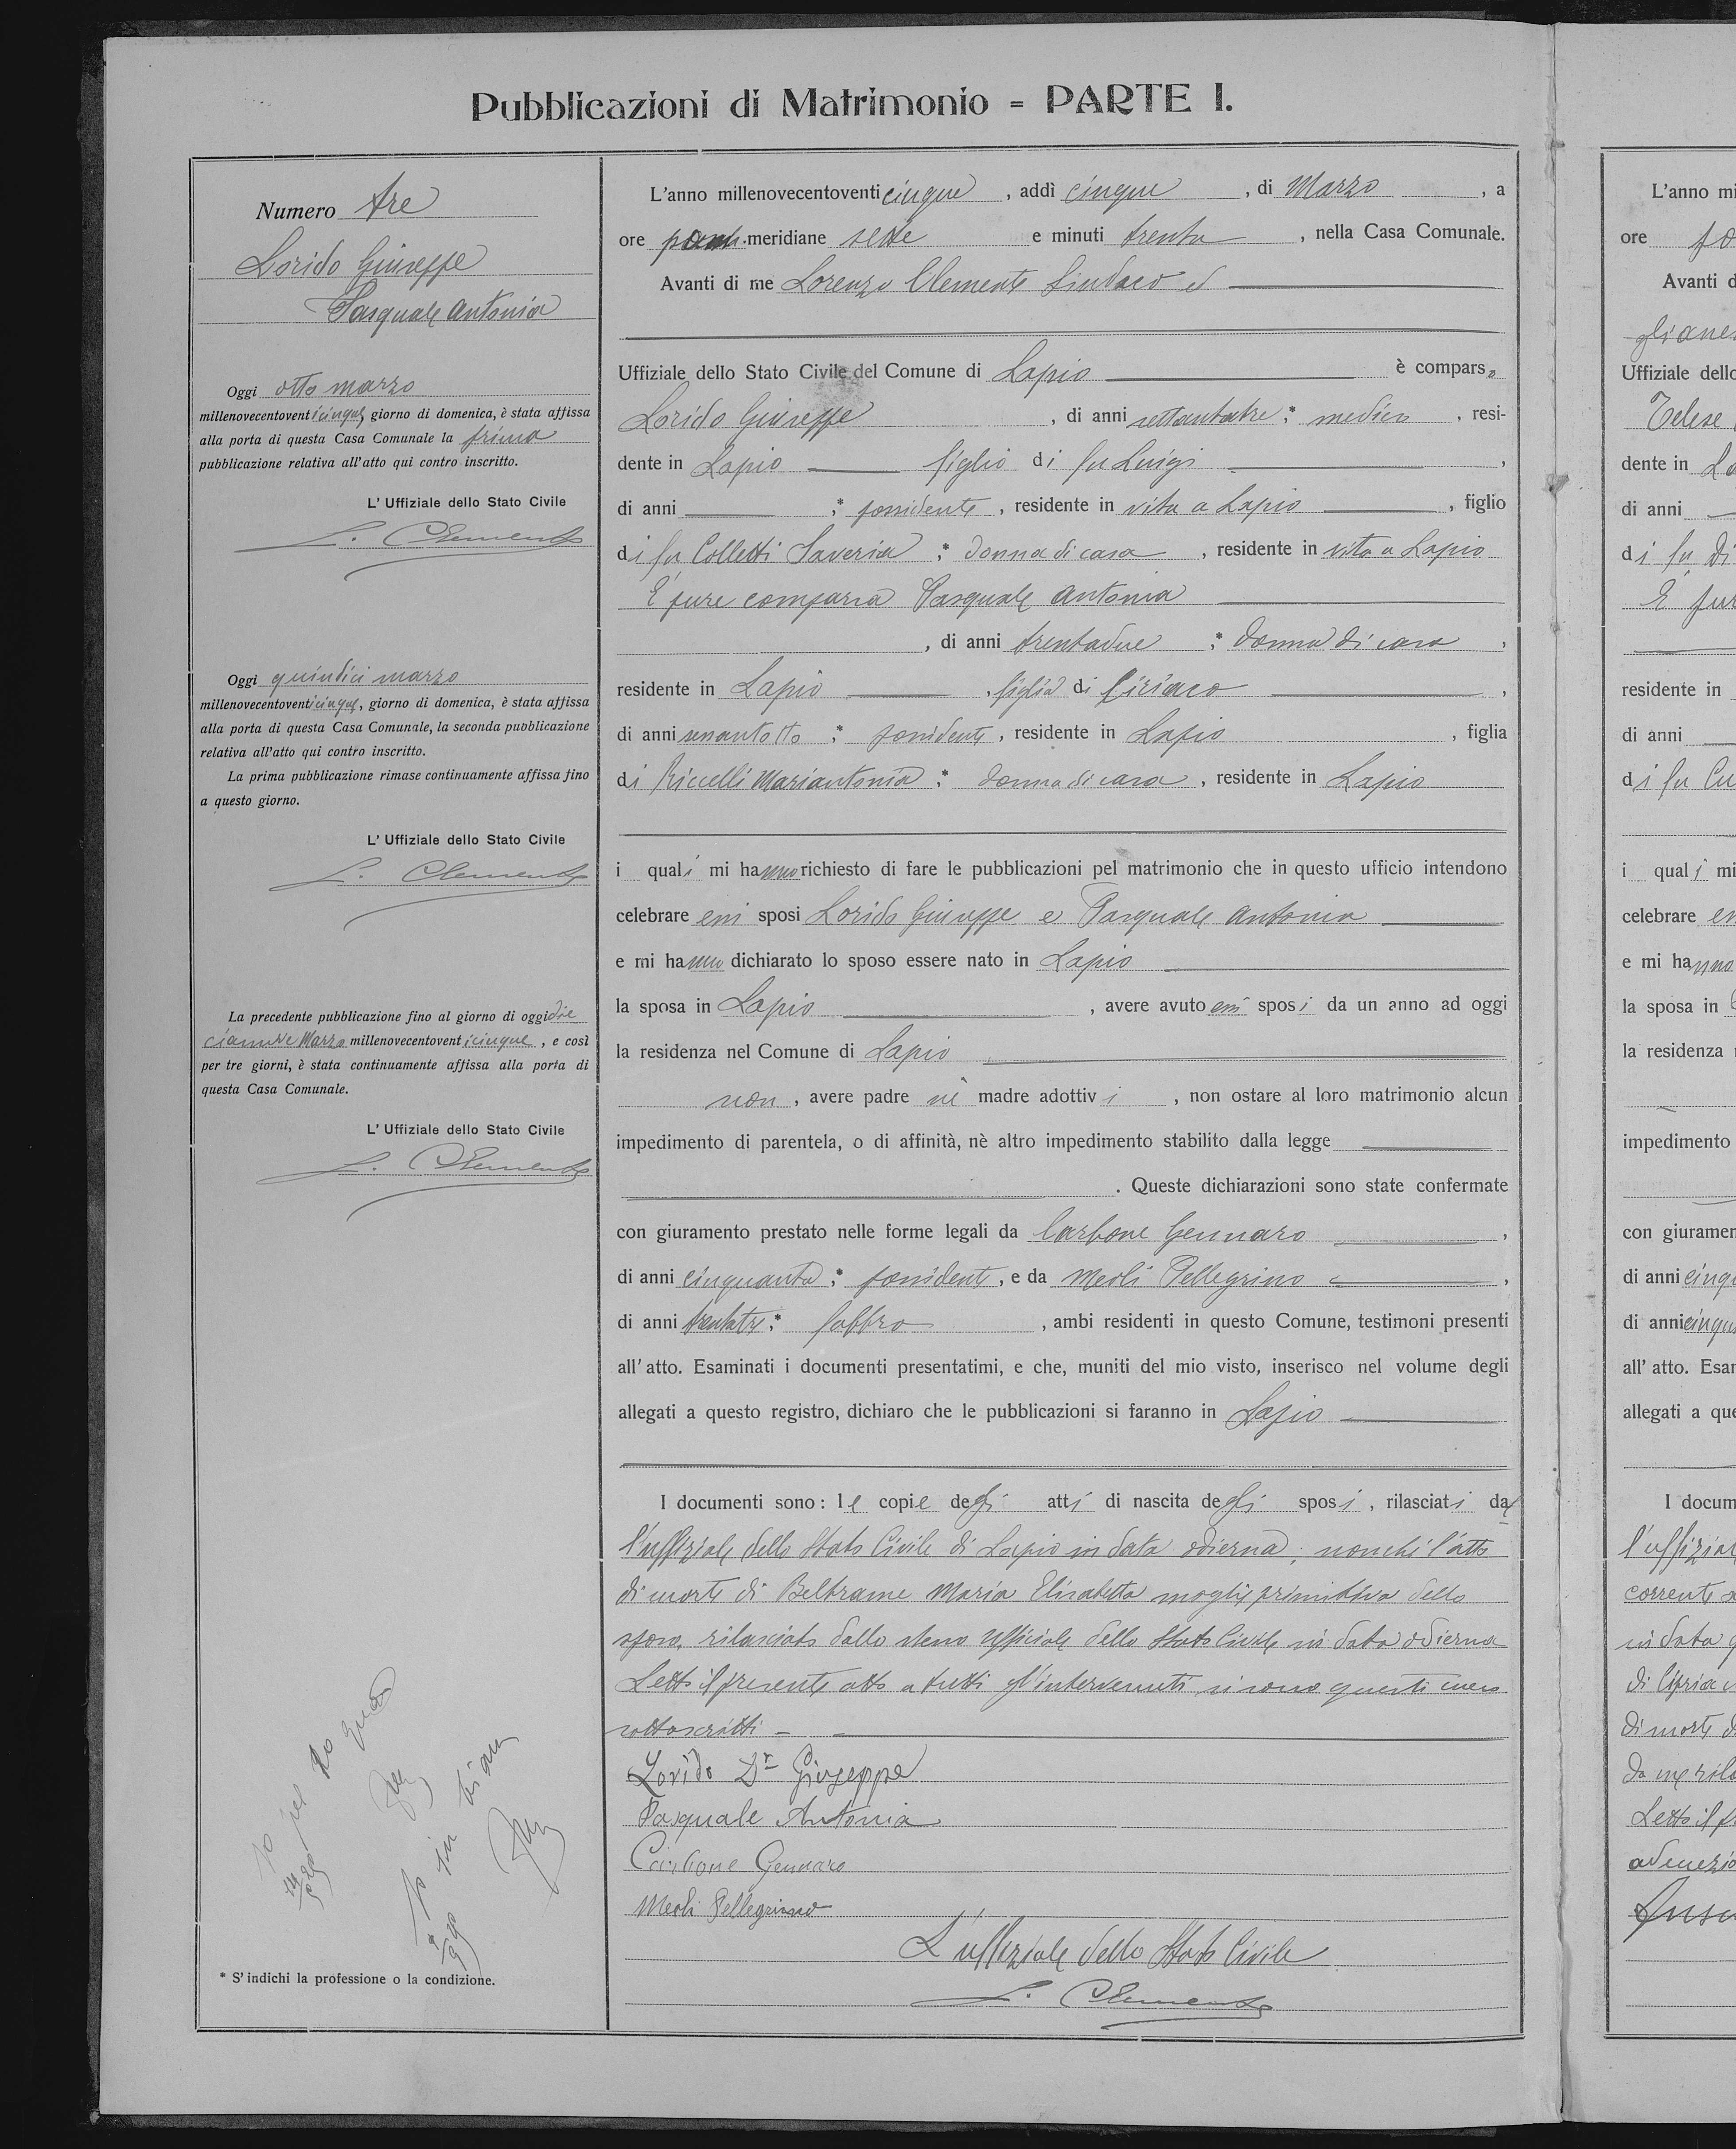 Pubblicazioni di Matrimonio = PARTE I.
Numero tre
Lorido Giuseppe
Pasquale Antonia
Oggi otto marzo
millenovecentoventicinque, giorno di domenica, è stata affissa
alla porta di questa Casa Comunale la prima
pubblicazione relativa all'atto qui contro inscritto.
L' Uffiziale dello Stato Civile
L. Clemente
Oggi quindici marzo
millenovecentoventicinque, giorno di domenica, è stata affissa
alla porta di questa Casa Comunale, la seconda pubblicazione
relativa all'atto qui contro inscritto.
La prima pubblicazione rimase continuamente affissa fino
a questo giorno.
L' Uffiziale dello Stato Civile
L. Clemente
La precedente pubblicazione fino al giorno di oggi die
ciannove Marzo millenovecentoventicinque, e così
per tre giorni, è stata continuamente affissa alla porta di
questa Casa Comunale.
L' Uffiziale dello Stato Civile
L. Clemente
* S' indichi la professione o la condizione.
L'anno millenovecentoventicinque, addì cinque, di Marzo, a
ore meridiane sette e minuti trenta, nella Casa Comunale.
Avanti di me Lorenzo Clemente Sindaco ed
Uffiziale dello Stato Civile del Comune di Lapio è comparso
Lorido Giuseppe, di anni settantatre;* medico, resi-
dente in Lapio figlio di fu Luigi,
di anni ;* possidente, residente in vita a Lapio, figlio
di fu Colletti Saveria;* donna di casa, residente in vita a Lapio
È pure comparsa Pasquale Antonia
, di anni trentadue;* donna di casa,
residente in Lapio, figlia di Ciriaco,
di anni sessantotto;* possidente, residente in Lapio, figlia
di Riccelli Mariantonia;* donna di casa, residente in Lapio
i quali mi hanno richiesto di fare le pubblicazioni pel matrimonio che in questo ufficio intendono
celebrare essi sposi Lorido Giuseppe e Pasquale Antonia
e mi hanno dichiarato lo sposo essere nato in Lapio
la sposa in Lapio, avere avuto essi sposi da un anno ad oggi
la residenza nel Comune di Lapio
non, avere padre nè madre adottivi, non ostare al loro matrimonio alcun
impedimento di parentela, o di affinità, nè altro impedimento stabilito dalla legge
. Queste dichiarazioni sono state confermate
con giuramento prestato nelle forme legali da Carbone Gennaro,
di anni cinquanta;* possidente, e da Meoli Pellegrino,
di anni trentatre;* fabbro, ambi residenti in questo Comune, testimoni presenti
all' atto. Esaminati i documenti presentatimi, e che, muniti del mio visto, inserisco nel volume degli
allegati a questo registro, dichiaro che le pubblicazioni si faranno in Lapio
I documenti sono: le copie degli atti di nascita degli sposi, rilasciati dal
l'uffiziale dello Stato Civile di Lapio in data odierna; nonchè l'atto
di morte di Beltrame Maria Elisabetta moglie primitiva dello
sposo, rilasciato dallo stesso Ufficiale dello Stato Civile in data odierna
Letto il presente atto a tutti gl'intervenuti si sono questi meco
sottoscritti -
Lorido Dr Giuseppe
Pasquale Antonia
Carbone Gennaro
Meoli Pellegrino
L'uffiziale dello Stato Civile
L. Clemente
L'anno mi
ore
Avanti d
Uffiziale dello
Telese
dente in La
di anni
di fu Di
È pur
residente in
di anni
di fu Cu
i quali mi
celebrare es
e mi hanno
la sposa in
la residenza
impedimento
con giuramen
di anni cinqu
di anni cinqu
all' atto. Esar
allegati a que
I docum
l'uffizial
corrente
in data
di Cipria
di morte d
da me rila
Letto il p